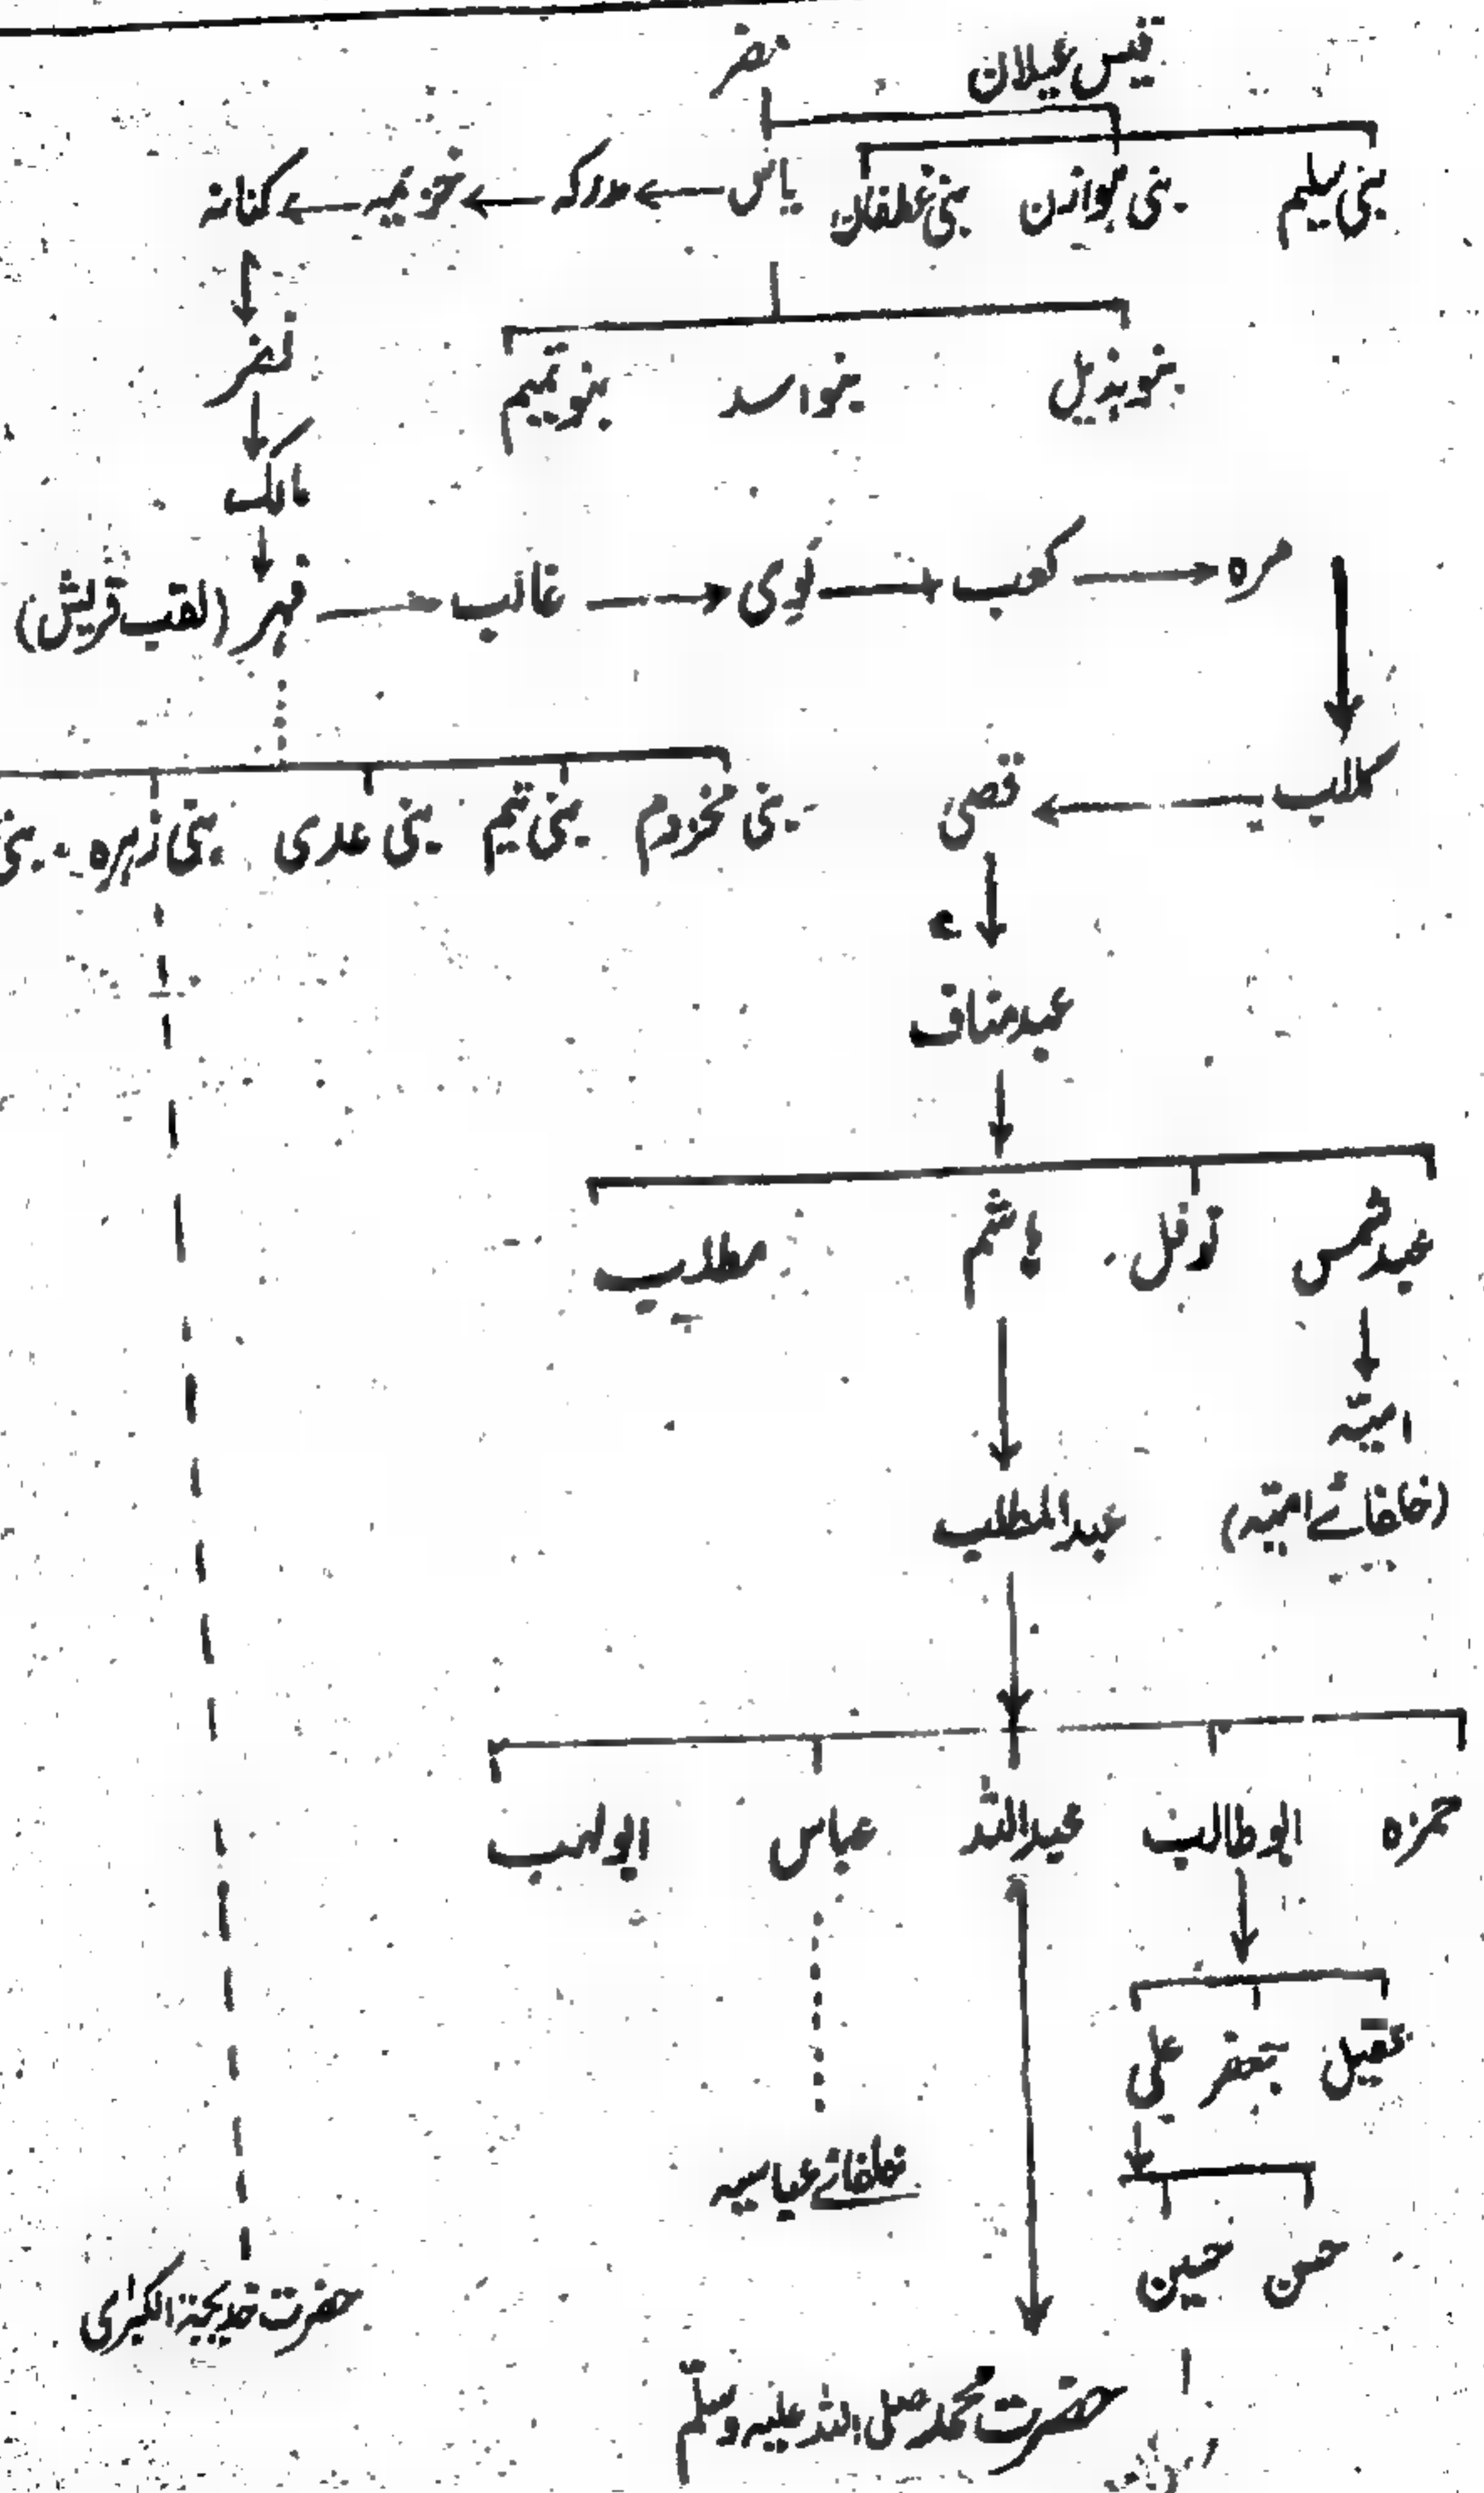 قیس عیلان مضر
بنی سلیم بنی ہوازن بنی غطفان یاس مدرکہ خزیمہ کنانہ
نضر
بنو ہذیل بنو اسد بنو تمیم
مالک
مرہ کعب لوی غالب فہر (لقب قریش)
کلاب قصیٰ
بنی مخزوم بنی تیم بنی عدی بنی زہرہ
عبد مناف
عبد شمس نوفل ہاشم مطلب
امیّہ
(خلفائے امیّہ) عبدالمطلب
حمزہ ابو طالب عبداللہ عباس ابولہب
عقیل جعفر علی
خلفائے عباسیہ
حسن حسین
حضرت خدیجۃ الکبرٰی
حضرت محمد صلی اللہ علیہ وسلّم